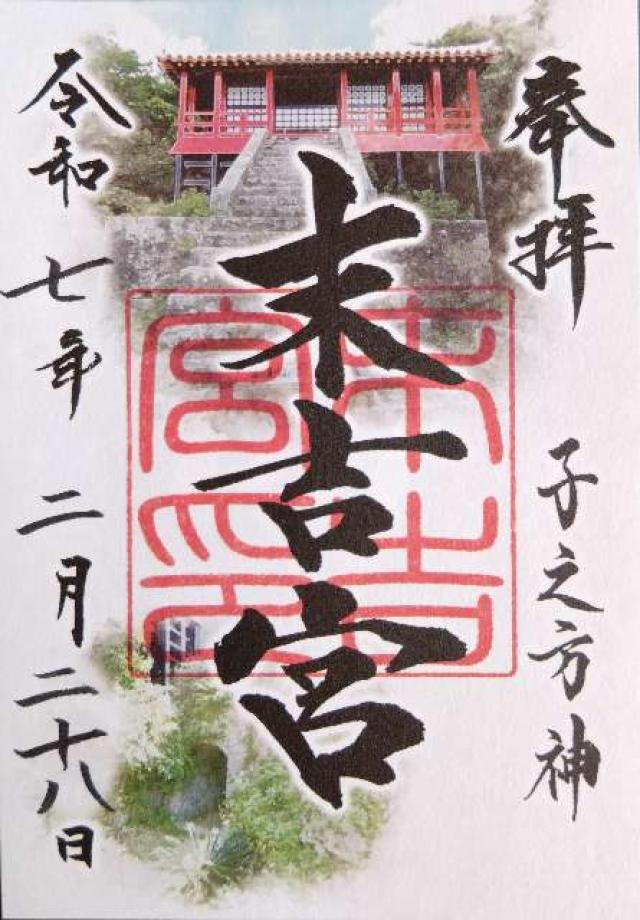 奉拝
子之方神
末吉宮
末吉宮印
令和七年二月二十八日